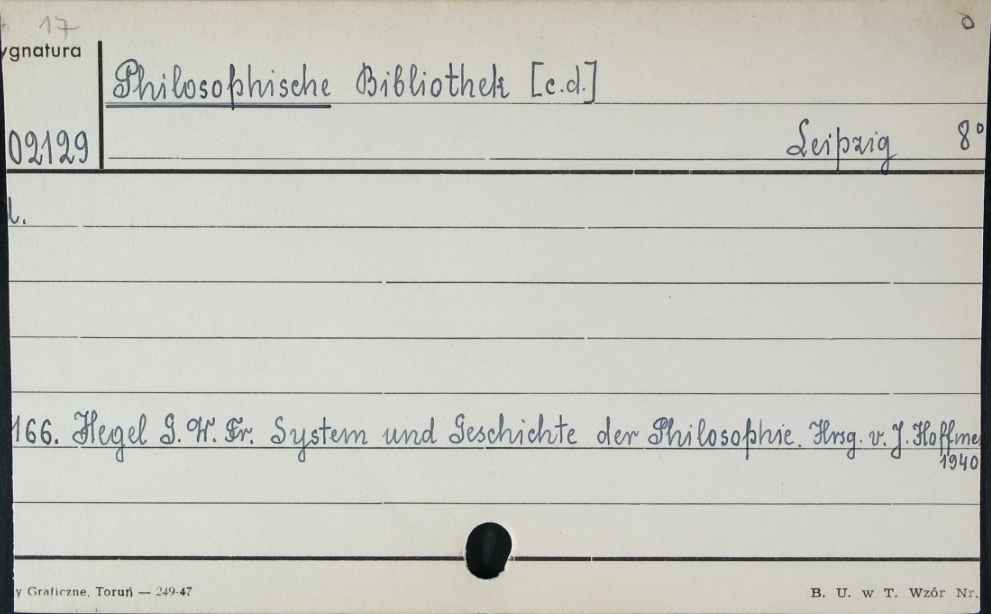 17
ygnatura
Philosophische Bibliothek [c.d.]
02129
Leipzig 8°
166. Hegel G. W. Fr. System und Geschichte der Philosophie. Hrsg. v. J. Hoffme
1940
y Graficzne, Toruń — 249-47
B. U. w T. Wzór Nr.